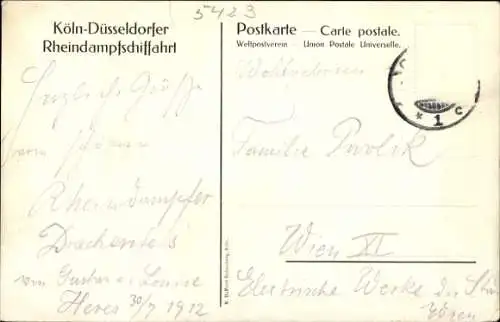 5423
Köln-Düsseldorfer
Rheindampfschiffahrt
Herzliche Grüße
vom schönen
Rheindampfer
Drachenfels
von Gustav u. Louise
Heres 30/7 1912
Postkarte — Carte postale.
Weltpostverein — Union Postale Universelle.
Familie Pavlik
Wien XI
Electrische Werke der
* 1 c